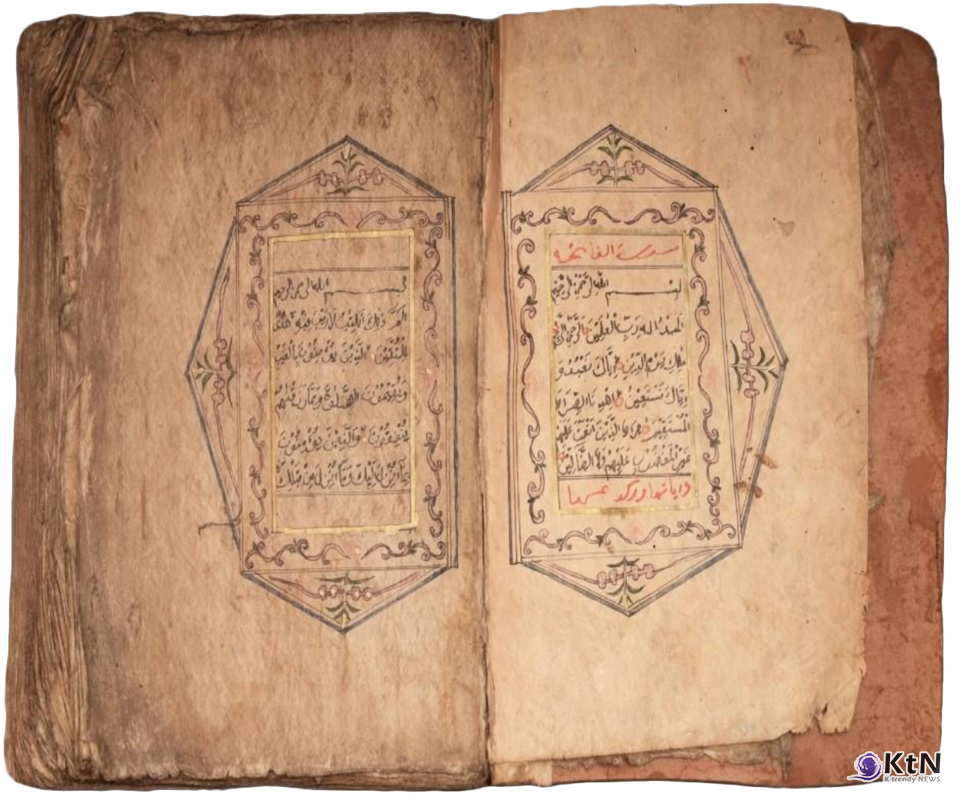 سورة الفاتحه
بسم الله الرحمن الرحيم
الحمد لله رب العلمين الرحمن الرحيم
ملك يوم الدين اياك نعبد و
اياك نستعين اهدنا الصراط
المستقيم صراط الذين انعمت عليهم
غير المغضوب عليهم ولا الضالين
بسم الله الرحمن الرحيم
الم ذلك الكتب لا ريب فيه هدى
للمتقين الذين يؤمنون بالغيب
ويقيمون الصلوة ومما رزقنهم
ينفقون والذين يؤمنون
بما انزل اليك وما انزل من قبلك
KtN
K-trendy NEWS